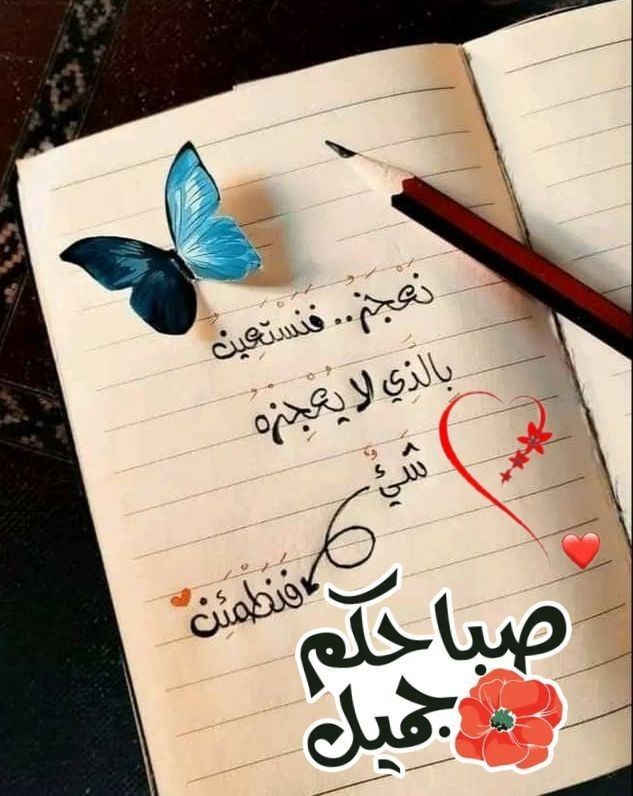 نَعْجَزُ.. فَنَسْتَعِينُ
بِالَّذِي لا يُعْجِزه
شَيْءٌ
فَنَطْمَئِن
صباحكم
جميل